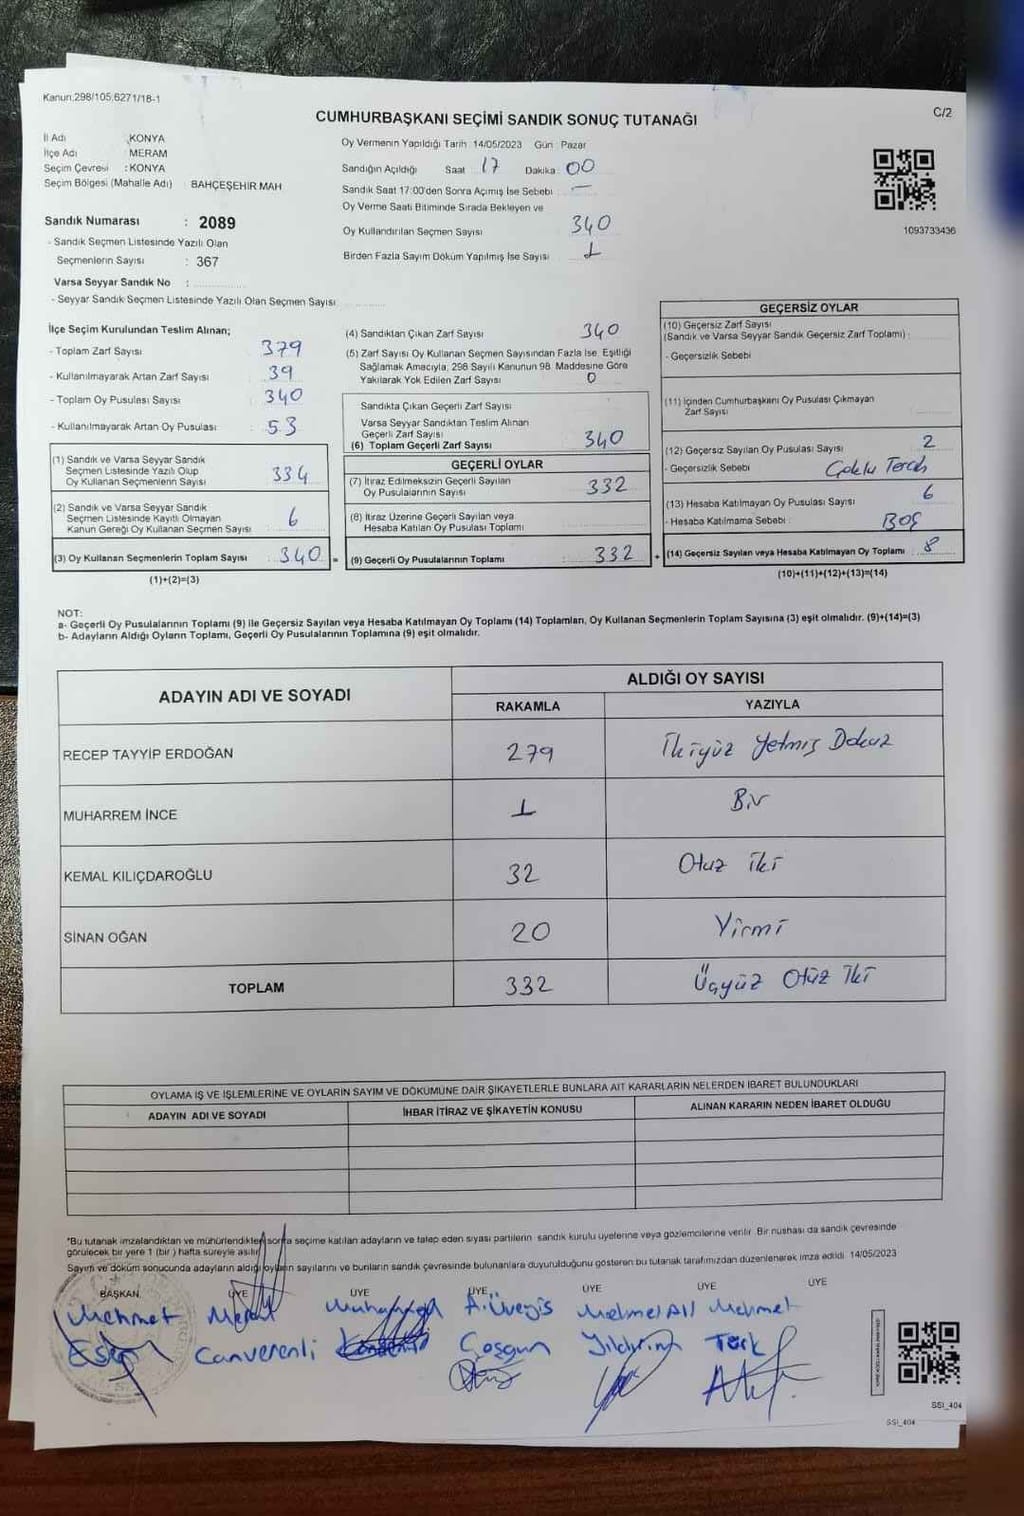 Kanun:298/105,6271/18-1
C/2
CUMHURBAŞKANI SEÇİMİ SANDIK SONUÇ TUTANAĞI
İl Adı : KONYA
İlçe Adı : MERAM
Seçim Çevresi : KONYA
Seçim Bölgesi (Mahalle Adı) : BAHÇEŞEHİR MAH
Sandık Numarası : 2089
- Sandık Seçmen Listesinde Yazılı Olan
Seçmenlerin Sayısı : 367
Varsa Seyyar Sandık No :
- Seyyar Sandık Seçmen Listesinde Yazılı Olan Seçmen Sayısı
Oy Vermenin Yapıldığı Tarih 14/05/2023 Gün : Pazar
Sandığın Açıldığı Saat 17 Dakika 00
Sandık Saat 17:00'den Sonra Açımış İse Sebebi : —
Oy Verme Saati Bitiminde Sırada Bekleyen ve
Oy Kullandırılan Seçmen Sayısı 340
Birden Fazla Sayım Döküm Yapılmış İse Sayısı 1
1093733436
İlçe Seçim Kurulundan Teslim Alınan;
- Toplam Zarf Sayısı : 379
- Kullanılmayarak Artan Zarf Sayısı : 39
- Toplam Oy Pusulası Sayısı : 340
- Kullanılmayarak Artan Oy Pusulası : 53
(1) Sandık ve Varsa Seyyar Sandık
Seçmen Listesinde Yazılı Olup
Oy Kullanan Seçmenlerin Sayısı : 334
(2) Sandık ve Varsa Seyyar Sandık
Seçmen Listesinde Kayıtlı Olmayan
Kanun Gereği Oy Kullanan Seçmen Sayısı 6
(3) Oy Kullanan Seçmenlerin Toplam Sayısı : 340 =
(1)+(2)=(3)
(4) Sandıktan Çıkan Zarf Sayısı 340
(5) Zarf Sayısı Oy Kullanan Seçmen Sayısından Fazla İse, Eşitliği
Sağlamak Amacıyla, 298 Sayılı Kanunun 98. Maddesine Göre
Yakılarak Yok Edilen Zarf Sayısı 0
Sandıkta Çıkan Geçerli Zarf Sayısı
Varsa Seyyar Sandıktan Teslim Alınan
Geçerli Zarf Sayısı
(6) Toplam Geçerli Zarf Sayısı 340
GEÇERLİ OYLAR
(7) İtiraz Edilmeksizin Geçerli Sayılan
Oy Pusulalarının Sayısı 332
(8) İtiraz Üzerine Geçerli Sayılan veya
Hesaba Katılan Oy Pusulası Toplamı
(9) Geçerli Oy Pusulalarının Toplamı : 332 +
GEÇERSİZ OYLAR
(10) Geçersiz Zarf Sayısı
(Sandık ve Varsa Seyyar Sandık Geçersiz Zarf Toplamı) :
- Geçersizlik Sebebi
(11) İçinden Cumhurbaşkanı Oy Pusulası Çıkmayan
Zarf Sayısı
(12) Geçersiz Sayılan Oy Pusulası Sayısı 2
- Geçersizlik Sebebi : Çoklu Tercih
(13) Hesaba Katılmayan Oy Pusulası Sayısı 6
- Hesaba Katılmama Sebebi : BOŞ
(14) Geçersiz Sayılan veya Hesaba Katılmayan Oy Toplamı : 8
(10)+(11)+(12)+(13)=(14)
NOT:
a- Geçerli Oy Pusulalarının Toplamı (9) ile Geçersiz Sayılan veya Hesaba Katılmayan Oy Toplamı (14) Toplamları, Oy Kullanan Seçmenlerin Toplam Sayısına (3) eşit olmalıdır. (9)+(14)=(3)
b- Adayların Aldığı Oyların Toplamı, Geçerli Oy Pusulalarının Toplamına (9) eşit olmalıdır.
ADAYIN ADI VE SOYADI
ALDIĞI OY SAYISI
RAKAMLA YAZIYLA
RECEP TAYYİP ERDOĞAN 279 İkiyüz Yetmiş Dokuz
MUHARREM İNCE 1 Bir
KEMAL KILIÇDAROĞLU 32 Otuz İki
SİNAN OĞAN 20 Yirmi
TOPLAM 332 Üçyüz Otuz İki
OYLAMA İŞ VE İŞLEMLERİNE VE OYLARIN SAYIM VE DÖKÜMÜNE DAİR ŞİKAYETLERLE BUNLARA AİT KARARLARIN NELERDEN İBARET BULUNDUKLARI
ADAYIN ADI VE SOYADI İHBAR İTİRAZ VE ŞİKAYETİN KONUSU ALINAN KARARIN NEDEN İBARET OLDUĞU
*Bu tutanak imzalandıktan ve mühürlendikten sonra seçime katılan adayların ve talep eden siyasi partilerin sandık kurulu üyelerine veya gözlemcilerine verilir. Bir nüshası da sandık çevresinde
görülecek bir yere 1 (bir) hafta süreyle asılır.
Sayım ve döküm sonucunda adayların aldığı oyların sayılarını ve bunların sandık çevresinde bulunanlara duyurulduğunu gösteren bu tutanak tarafımızdan düzenlenerek imza edildi. 14/05/2023
BAŞKAN ÜYE ÜYE ÜYE ÜYE ÜYE ÜYE
Mehmet A.Üveyis Mehmet Ali Mehmet
Canverenli Coşgun Yıldırım Türk
SSI_404
SSI_404